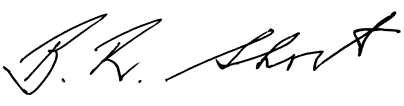 B. R. Short